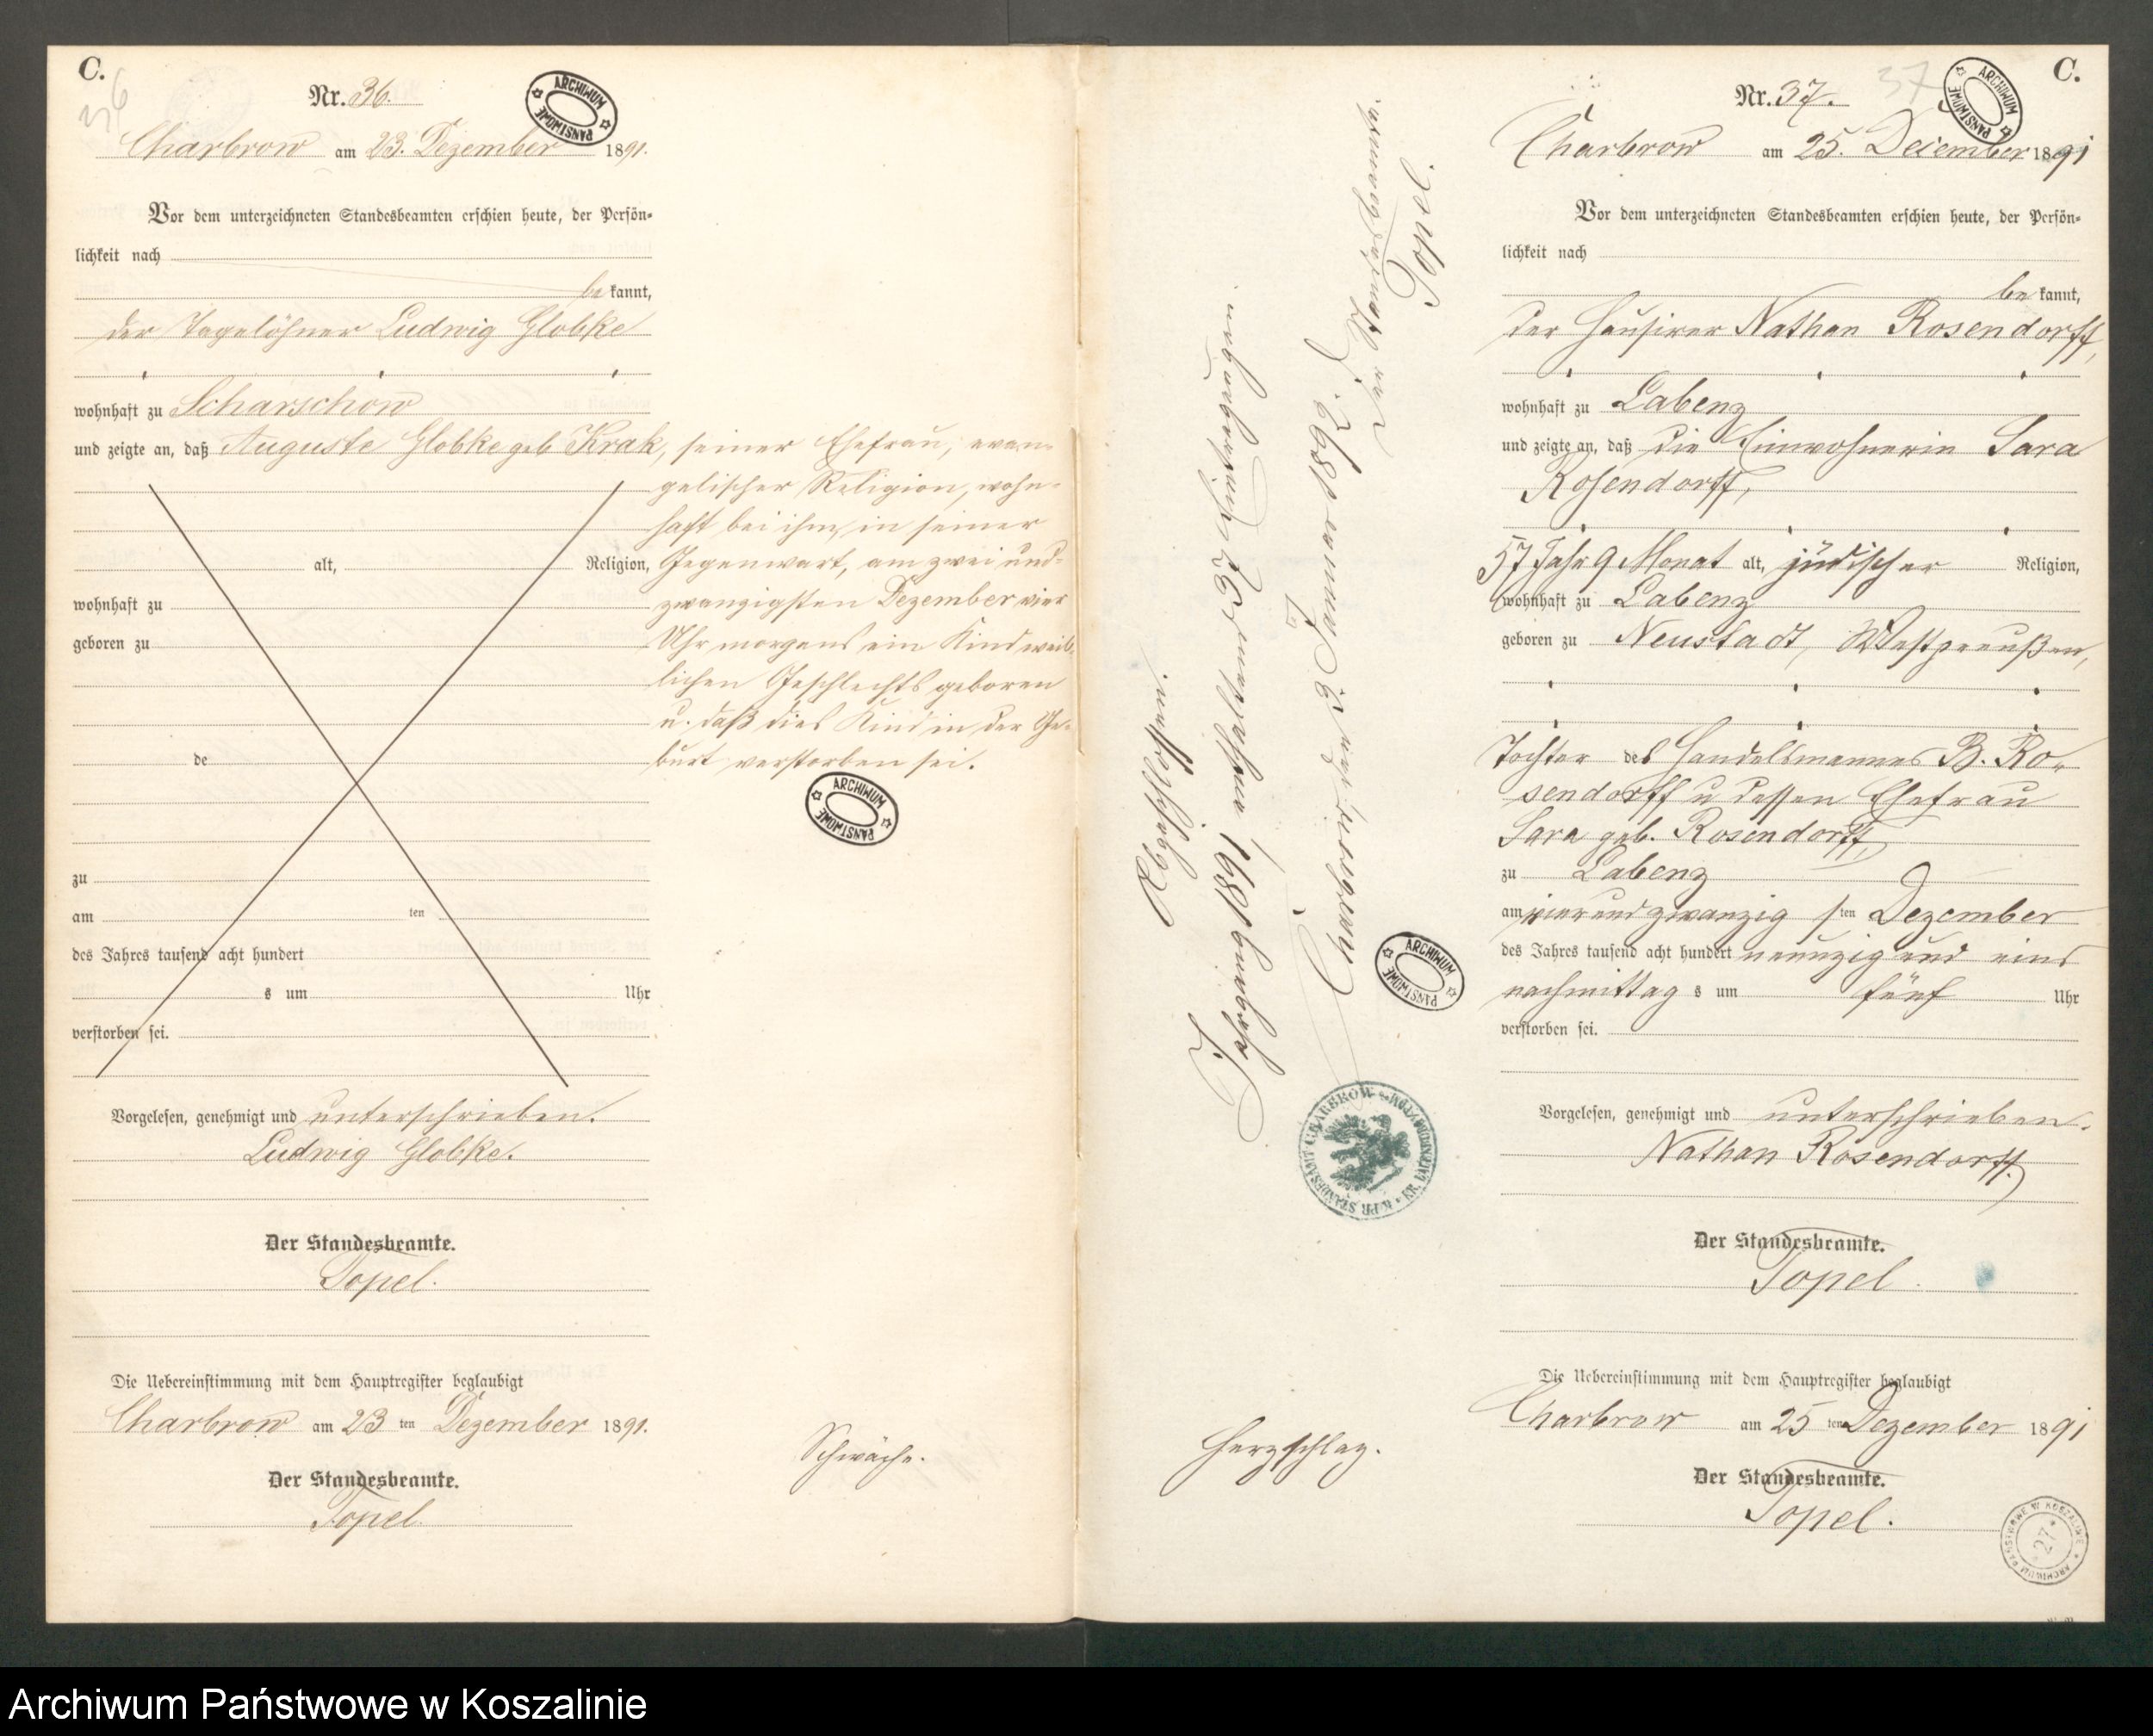 C.
36
Nr. 36.
ARCHIWUM PAŃSTWOWE
Charbrow am 23. Dezember 1891.
Vor dem unterzeichneten Standesbeamten erschien heute, der Persön-
lichkeit nach
be kannt,
der Tagelöhner Ludwig Globke
wohnhaft zu Scharschow
und zeigte an, daß Auguste Globke geb Krak, seiner Ehefrau, evan-
gelischer Religion, wohn-
haft bei ihm, in seiner
alt, Religion, Gegenwart, am zwei und
wohnhaft zu zwanzigsten Dezember vier
geboren zu Uhr morgens ein Kind weib-
lichen Geschlechts geboren
u. daß dies Kind in der Ge-
de burt verstorben sei.
ARCHIWUM PAŃSTWOWE
zu
am ten
des Jahres tausend acht hundert
s um Uhr
verstorben sei.
Vorgelesen, genehmigt und unterschrieben.
Ludwig Globke.
Der Standesbeamte.
Topel.
Die Uebereinstimmung mit dem Hauptregister beglaubigt
Charbrow am 23 ten Dezember 1891.
Schwäche.
Der Standesbeamte.
Topel.
Abgeschlossen.
Jahrgang 1891, enthaltend 37 Eintragungen
Charbrow, den 2. Januar 1892.
Der Standesbeamte.
Topel.
ARCHIWUM PAŃSTWOWE
K. PR. STANDESAMT CHARBROW
Herzschlag.
C.
37
Nr. 37.
ARCHIWUM PAŃSTWOWE
Charbrow am 25. Dezember 1891
Vor dem unterzeichneten Standesbeamten erschien heute, der Persön-
lichkeit nach
be kannt,
der Hausirer Nathan Rosendorff,
wohnhaft zu Labenz
und zeigte an, daß die Einwohnerin Sara
Rosendorff,
57 Jahr 9 Monat alt, jüdischer Religion,
wohnhaft zu Labenz
geboren zu Neustadt, Westpreußen,
Tochter des Handelsmannes B. Ro-
sendorff u dessen Ehefrau
Sara geb. Rosendorff,
zu Labenz
am vier und zwanzig sten Dezember
des Jahres tausend acht hundert neunzig und eins
nachmittag s um fünf Uhr
verstorben sei.
Vorgelesen, genehmigt und unterschrieben.
Nathan Rosendorff.
Der Standesbeamte.
Topel.
Die Uebereinstimmung mit dem Hauptregister beglaubigt
Charbrow am 25 ten Dezember 1891
Der Standesbeamte.
Topel.
ARCHIWUM PAŃSTWOWE W KOSZALINIE
27
Archiwum Państwowe w Koszalinie